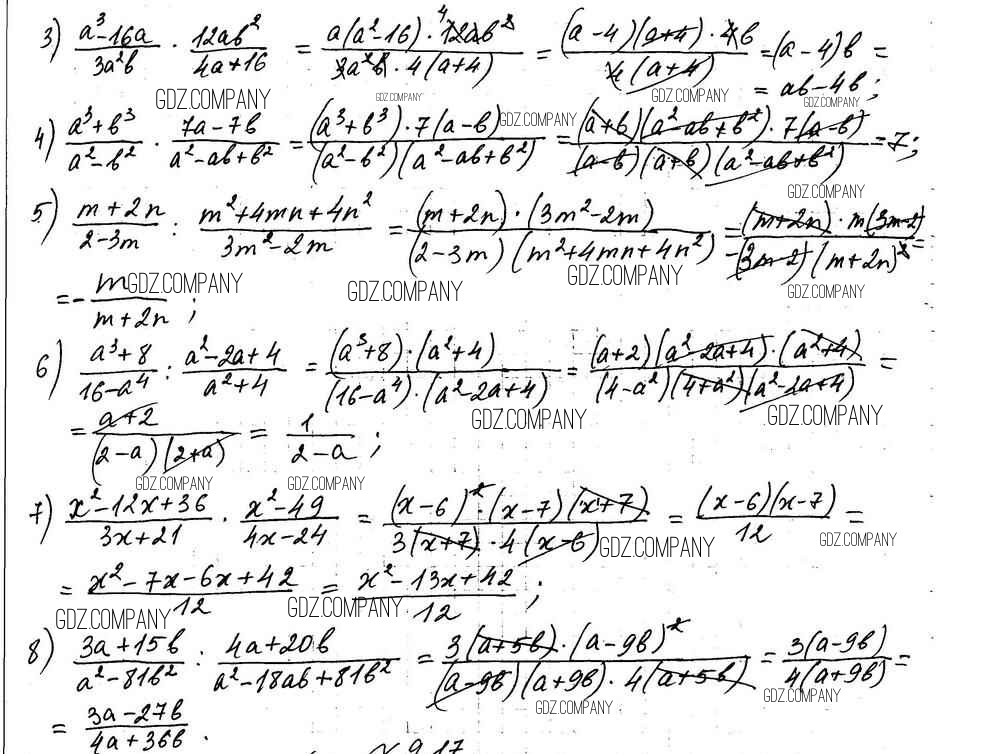 3) (a³-16a)/(3a²b) · (12ab²)/(4a+16) = (a(a²-16) · 12ab²)/(3a²b · 4(a+4)) 4 = ((a-4)(a+4) · 4b)/(4(a+4)) = (a-4)b =
= ab-4b;
GDZ.COMPANY GDZ.COMPANY GDZ.COMPANY GDZ.COMPANY
4) (a³+b³)/(a²-b²) · (7a-7b)/(a²-ab+b²) = ((a³+b³) · 7(a-b))/((a²-b²)(a²-ab+b²)) = ((a+b)(a²-ab+b²) · 7(a-b))/((a-b)(a+b)(a²-ab+b²)) = 7;
GDZ.COMPANY
GDZ.COMPANY
5) (m+2n)/(2-3m) : (m²+4mn+4n²)/(3m²-2m) = ((m+2n) · (3m²-2m))/((2-3m)(m²+4mn+4n²)) = ((m+2n) · m(3m-2))/(-(3m-2)(m+2n)²) =
= - m/(m+2n);
GDZ.COMPANY GDZ.COMPANY GDZ.COMPANY GDZ.COMPANY
6) (a³+8)/(16-a⁴) : (a²-2a+4)/(a²+4) = ((a³+8) · (a²+4))/((16-a⁴) · (a²-2a+4)) = ((a+2)(a²-2a+4) · (a²+4))/((4-a²)(4+a²)(a²-2a+4)) =
GDZ.COMPANY GDZ.COMPANY
= (a+2)/((2-a)(2+a)) = 1/(2-a);
GDZ.COMPANY GDZ.COMPANY
7) (x²-12x+36)/(3x+21) · (x²-49)/(4x-24) = ((x-6)² · (x-7)(x+7))/(3(x+7) · 4(x-6)) = ((x-6)(x-7))/12 =
GDZ.COMPANY GDZ.COMPANY
= (x²-7x-6x+42)/12 = (x²-13x+42)/12;
GDZ.COMPANY GDZ.COMPANY
8) (3a+15b)/(a²-81b²) : (4a+20b)/(a²-18ab+81b²) = (3(a+5b) · (a-9b)²)/((a-9b)(a+9b) · 4(a+5b)) = (3(a-9b))/(4(a+9b)) =
GDZ.COMPANY GDZ.COMPANY
= (3a-27b)/(4a+36b).